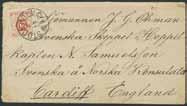 Timmermannen J. G. Ekman
Svenska Skeppet Hoppet
Kapten N. Samuelson
Svenska & Norska Konsulatet
Cardiff England